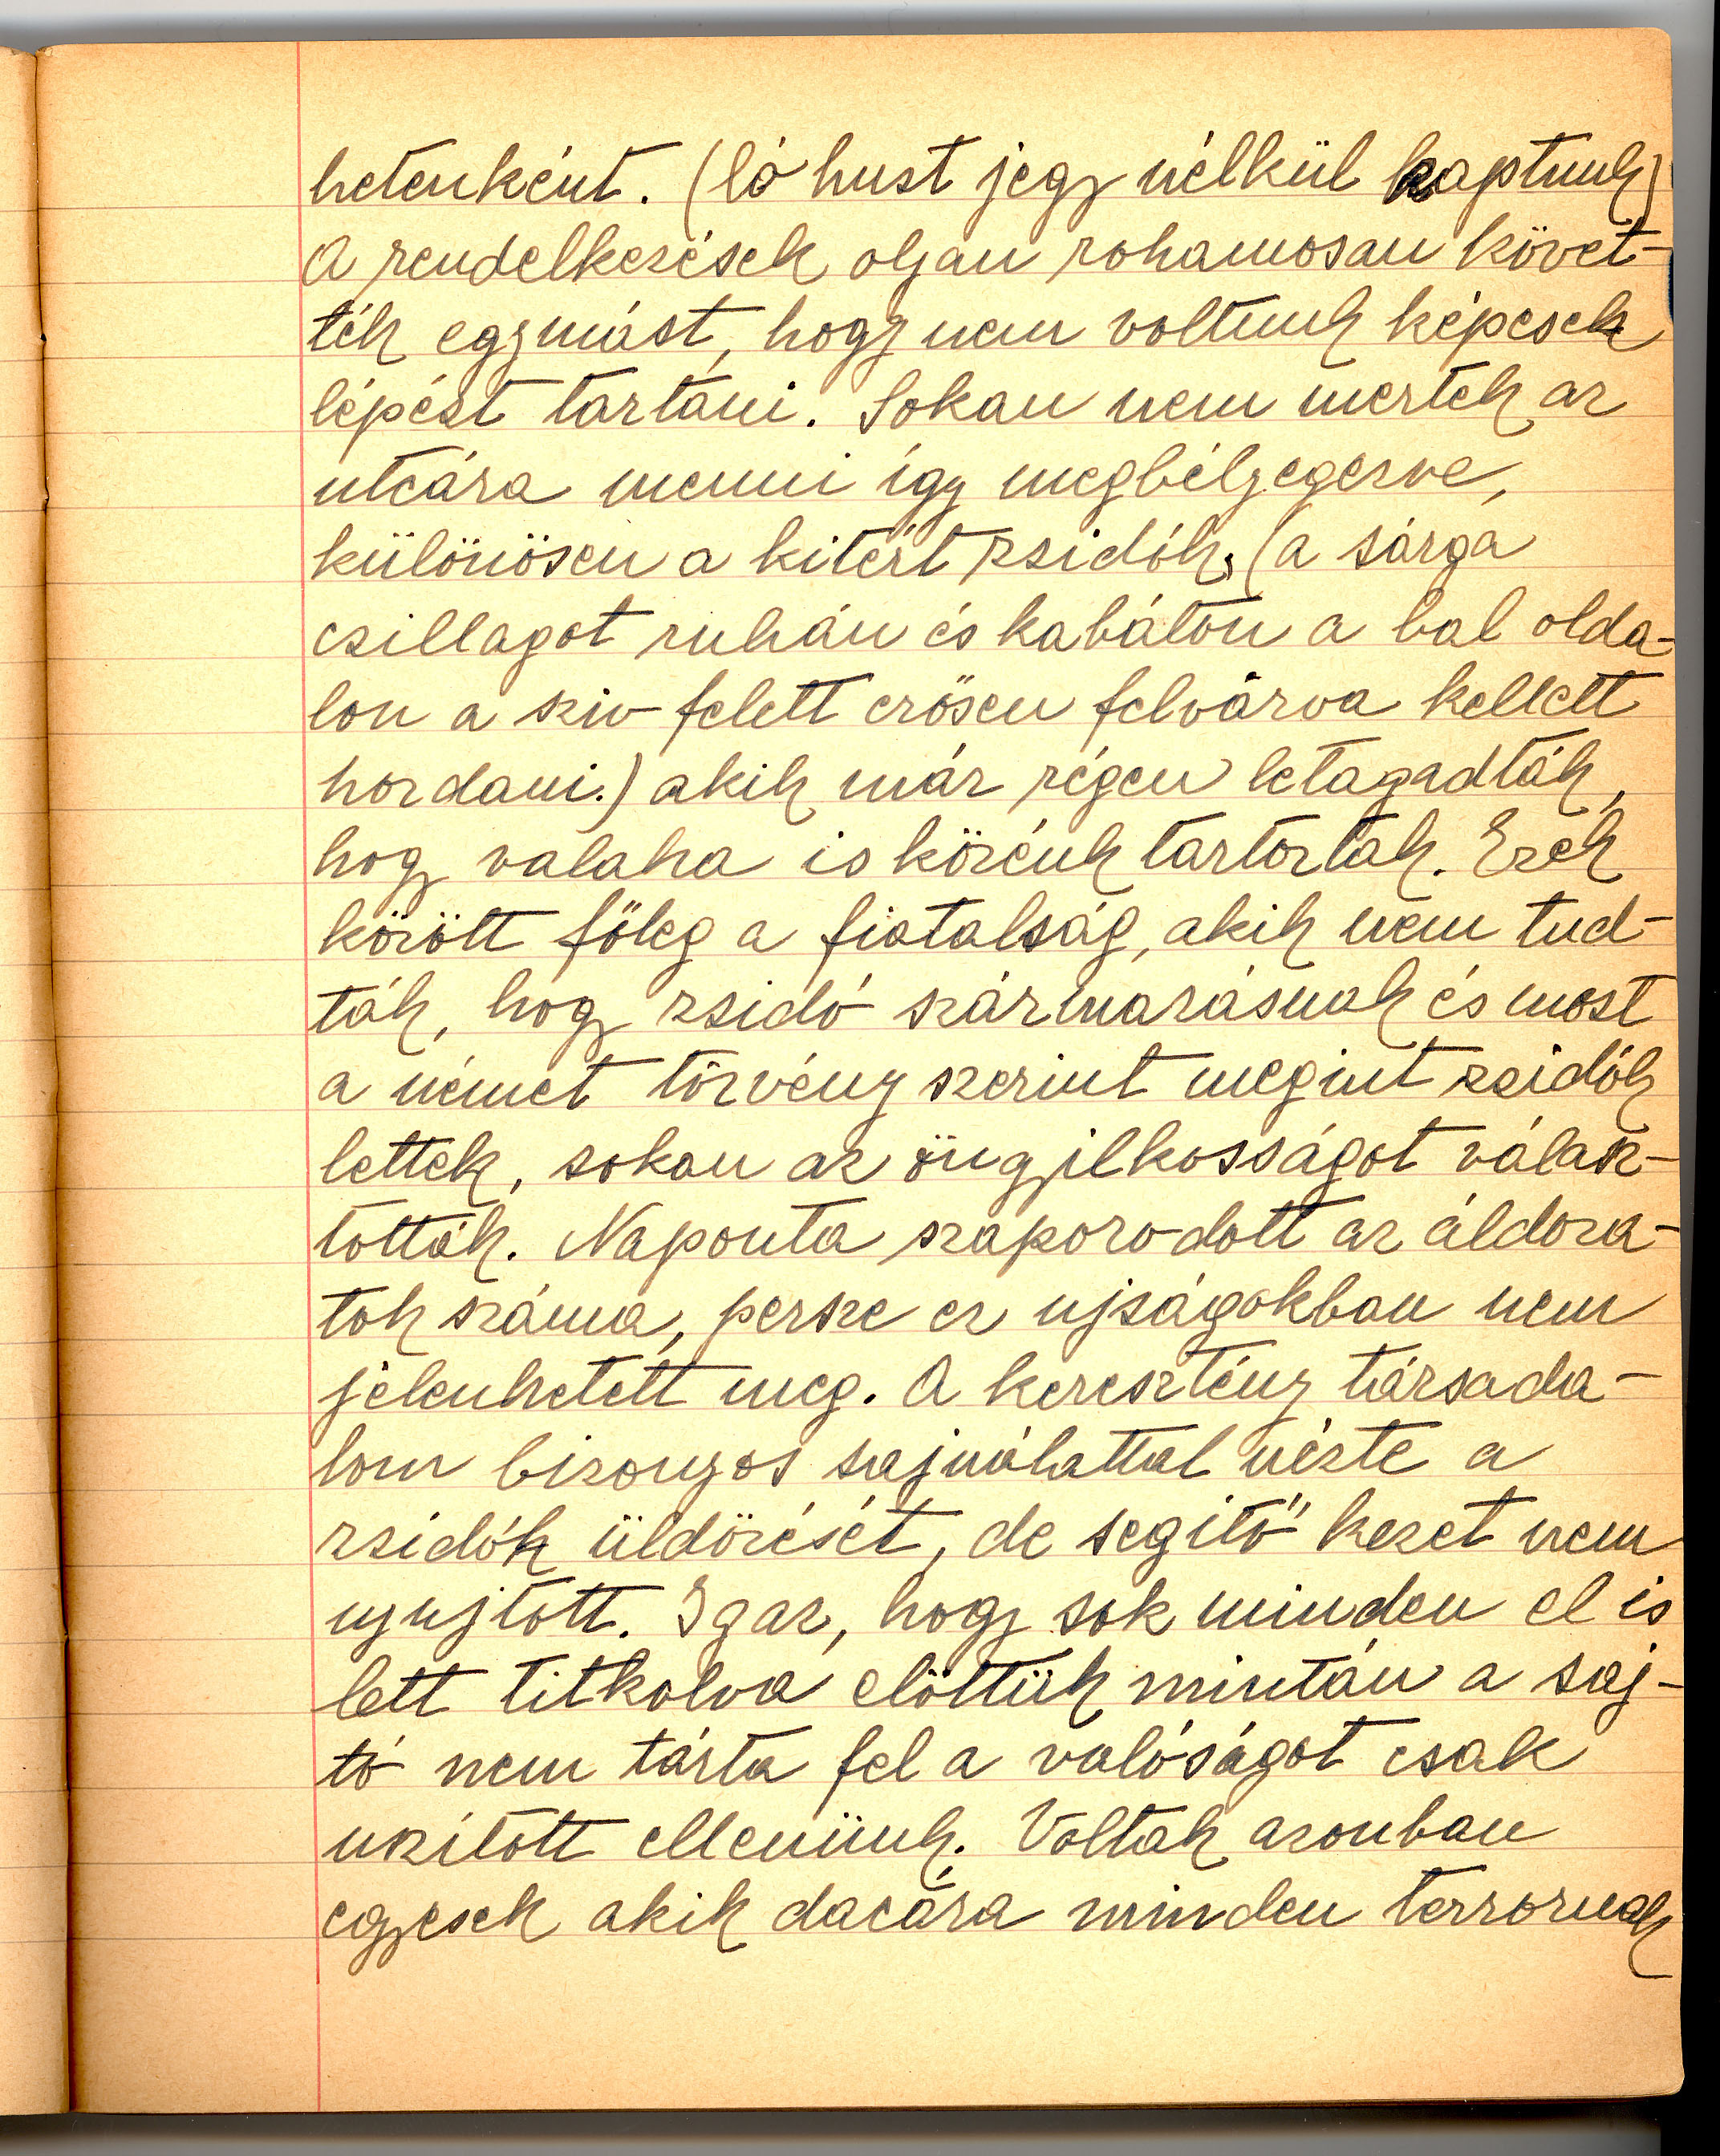 hetenként. (ló hust jegy nélkül kaptunk)
A rendelkezések olyan rohamosan követ-
ték egymást, hogy nem voltunk képesek
lépést tartani. Sokan nem mertek az
utcára menni így megbélyegezve,
különösen a kitért zsidók, (a sárga
csillagot ruhán és kabáton a bal olda-
lon a sziv felett erősen felvárva kellett
hordani.) akik már régen letagadták,
hogy valaha is közénk tartoztak. Ezek
között főleg a fiatalság, akik nem tud-
ták, hogy zsidó származásnak és most
a német törvény szerint megint zsidók
lettek, sokan az öngyilkosságot válasz-
tották. Naponta szaporodott az áldoza-
tok száma, persze ez ujságokban nem
jelenhetett meg. A keresztény társada-
lom bizonyos sajnálattal nézte a
zsidók üldözését, de segítő kezet nem
nyujtott. Igaz, hogy sok minden el is
lett titkolva előttük mintán a saj-
tó nem tárta fel a valóságot csak
uszított ellenünk. Voltak azonban
egyesek akik dacára minden terrornak